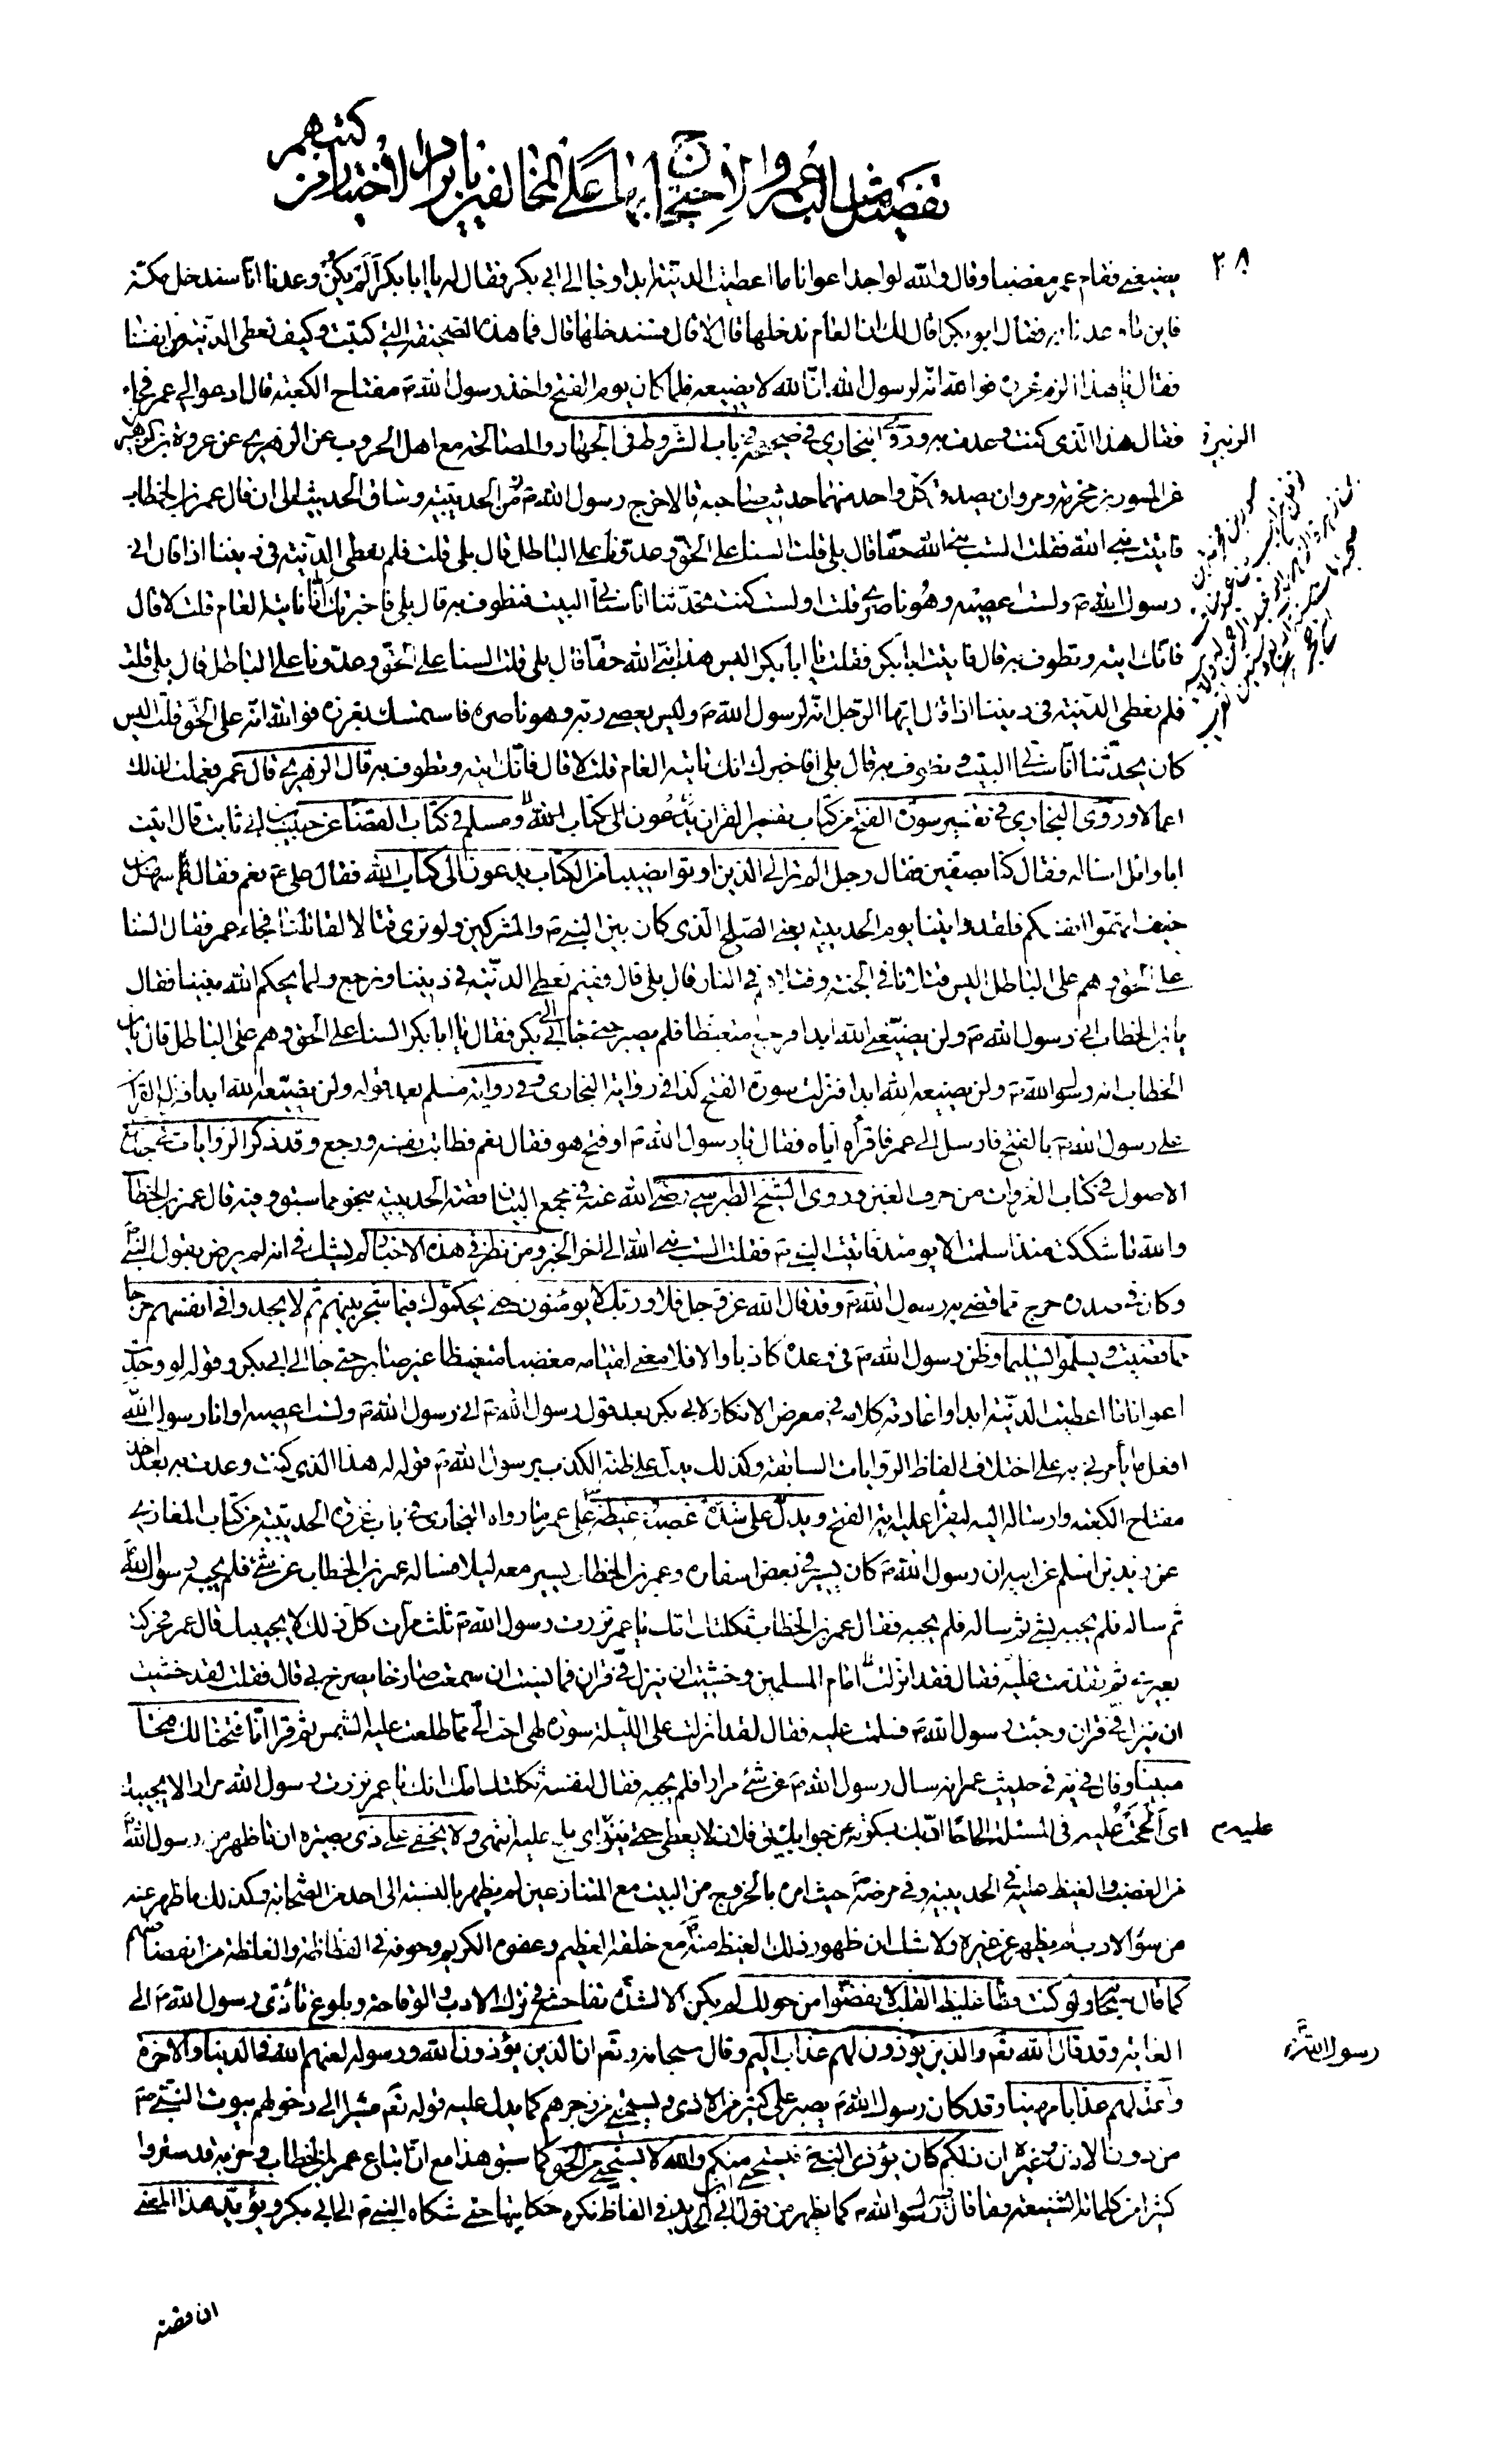 تفضيل مثالب عمر والاحتجاج بها على المخالفين بايراد الاخبار من كتبهم
٢٠٨
يضيعني فقام عمر مغضبا وقال والله لو اجد اعوانا ما اعطيت الدنية ابدا وجاء الى ابي بكر فقال له يا ابا بكر ألم يكن وعدنا انا سندخل مكة
فاين ما وعدنا به فقال ابو بكر اقال لك ان العام ندخلها قال لا قال فسندخلها قال فما هذه الصحيفة التي كتبت وكيف نعطي الدنية من انفسنا
فقال يا هذا الزم غرزه فوالله انه لرسول الله ان الله لا يضيعه فلما كان يوم الفتح واخذ رسول الله ص مفتاح الكعبة قال ادعوا الي عمر فجاء
فقال هذا الذي كنت وعدت به وروى البخاري في صحيحه في باب الشروط في الجهاد والمصالحة مع اهل الحروب عن الزهري عن عروة بن الزبير
عن المسور بن مخرمة ومروان يصدق كل واحد منهما حديث صاحبه قالا خرج رسول الله ص زمن الحديبية وساق الحديث الى ان قال عمر بن الخطاب
فاتيت نبي الله فقلت الست نبي الله حقا قال بلى قلت السنا على الحق وعدونا على الباطل قال بلى قلت فلم نعطي الدنية في ديننا اذا قال اني
رسول الله ص ولست اعصيه وهو ناصري قلت اولست كنت تحدثنا انا سناتي البيت فنطوف به قال بلى فاخبرتك انا ناتيه العام قلت لا قال
فانك اتيه وتطوف به قال فاتيت ابا بكر فقلت يا ابا بكر اليس هذا نبي الله حقا قال بلى قلت السنا على الحق وعدونا على الباطل قال بلى قلت
فلم نعطي الدنية في ديننا اذا قال ايها الرجل انه لرسول الله ص وليس يعصي ربه وهو ناصره فاستمسك بغرزه فوالله انه على الحق قلت اليس
كان يحدثنا انا سناتي البيت ونطوف به قال بلى افاخبرك انك تاتيه العام قلت لا قال فانك اتيه وتطوف به قال الزهري قال عمر فعملت لذلك
اعمالا وروى البخاري في تفسير سورة الفتح من كتاب تفسير القران ومسلم في كتاب القضاء عن حبيب بن ابي ثابت قال اتيت
ابا وائل اساله فقال كنا بصفين فقال رجل الم تر الى الذين اوتوا نصيبا من الكتاب يدعون الى كتاب الله فقال علي ع نعم فقال سهل بن
حنيف اتهموا انفسكم فلقد رايتنا يوم الحديبية يعني الصلح الذي كان بين النبي ص والمشركين ولو نرى قتالا لقاتلنا فجاء عمر فقال السنا
على الحق وهم على الباطل اليس قتلانا في الجنة وقتلاهم في النار قال بلى قال ففيم نعطي الدنية في ديننا ونرجع ولما يحكم الله بيننا فقال
يا بن الخطاب اني رسول الله ص ولن يضيعني الله ابدا فرجع متغيظا فلم يصبر حتى جاء الى ابي بكر فقال يا ابا بكر السنا على الحق وهم على الباطل قال يا بن
الخطاب انه رسول الله ص ولن يضيعه الله ابدا فنزلت سورة الفتح كذا في رواية البخاري وفي رواية مسلم بعد قوله ولن يضيعه الله ابدا فنزل القران
على رسول الله ص بالفتح فارسل الى عمر فاقرأه اياه فقال يا رسول الله ص او فتح هو فقال نعم فطابت نفسه ورجع وقد ذكر الروايات في جامع
الاصول في كتاب الغزوات من حرف الغين وروى الشيخ الطبرسي رضي الله عنه في مجمع البيان قصة الحديبية بنحو مما سبق وفيه قال عمر بن الخطاب
والله ما شككت منذ اسلمت الا يومئذ فاتيت النبي ص فقلت الست نبي الله الى اخر الخبر ومن نظر في هذه الاخبار لم يشك في انه لم يرض بقول النبي ص
وكان في صدره حرج مما قضى به رسول الله ص وقد قال الله عز وجل فلا وربك لا يؤمنون حتى يحكموك فيما شجر بينهم ثم لا يجدوا في انفسهم حرجا
مما قضيت ويسلموا تسليما وظن رسول الله ص في وعده كاذبا والا فلا معنى لقيامه مغضبا متغيظا غير صابر حتى جاء الى ابي بكر وقوله لو وجدت
اعوانا ما اعطيت الدنية ابدا واعادته كلامه في معرض الانكار لابي بكر بعد قول رسول الله ص اني رسول الله ص ولست اعصيه او انا رسول الله
افعل ما يأمرني به على اختلاف الفاظ الروايات السابقة وكذلك يدل على ظنه الكذب برسول الله ص قوله له هذا الذي كنت وعدت به بعد اخذ
مفتاح الكعبة وارساله اليه ليقرأ عليه اية الفتح ويدل على شدة غضبه وغيظه ص على عمر ما رواه البخاري في باب غزوة الحديبية من كتاب المغازي
عن زيد بن اسلم عن ابيه ان رسول الله ص كان يسير في بعض اسفاره وعمر بن الخطاب يسير معه ليلا فساله عمر بن الخطاب عن شئ فلم يجبه رسول الله ص
ثم ساله فلم يجبه بشئ ثم ساله فلم يجبه فقال عمر بن الخطاب ثكلتك امك يا عمر نزرت رسول الله ص ثلث مرات كل ذلك لا يجيبك قال عمر فحركت
بعيري ثم تقدمت امام المسلمين وخشيت ان ينزل في قران فما نشبت ان سمعت صارخا يصرخ بي قال فقلت لقد خشيت
ان ينزل في قران وجئت رسول الله ص فسلمت عليه فقال لقد انزلت علي الليلة سورة لهي احب الي مما طلعت عليه الشمس ثم قرأ انا فتحنا لك فتحا
مبينا وقال في حديث عمر انه سال رسول الله ص عن شئ مرارا فلم يجبه فقال لنفسه ثكلتك امك انك يا عمر نزرت رسول الله مرارا لا يجيبك
اي الححت عليه في المسئلة الحاحا ادبك بسكوته عن جوابك يقال فلان لا يعطي حتى ينزر اي يلح عليه انتهى ولا يخفى على ذي بصيرة ان ما ظهر من رسول الله ص
من الغضب والغيظ عليه في الحديبية وفي مرضه ص حيث امره بالخروج من البيت مع المتنازعين لم يظهر بالنسبة الى احد من الصحابة وكذلك ما ظهر عنه
من سوء الادب لم يظهر عن غيره ولا شك ان ظهور ذلك الغيظ منه ص مع خلقه العظيم وعفوه الكريم وخوفه في الفظاظة والغلظة من انفضاضهم
كما قال سبحانه ولو كنت فظا غليظ القلب لانفضوا من حولك لم يكن الا لشدة تفاحشه في ترك الادب والوقاحة وبلوغ تأذي رسول الله ص الى
الغاية وقد قال الله تع والذين يؤذون رسول الله لهم عذاب اليم وقال سبحانه وتع ان الذين يؤذون الله ورسوله لعنهم الله في الدنيا والاخرة
واعد لهم عذابا مهينا وقد كان رسول الله ص يصبر على كثير من الاذى ويستحيي من زجرهم كما يدل عليه قوله تع مشيرا الى دخولهم بيوت النبي ص
من دون الاذن وغيره ان ذلكم كان يؤذي النبي فيستحيي منكم والله لا يستحيي من الحق كما سبق هذا مع ان اتباع عمر بن الخطاب وحزبه قد ستروا
كثيرا من كلماته الشنيعة وما قال لرسول الله ص كما يظهر من قول ابن ابي الحديد في الفاظ نكره حكايتها حتى شكاه النبي ص الى ابي بكر ويؤيد هذا المعنى
الزبيرة
عليه م
رسول الله
ان قصة